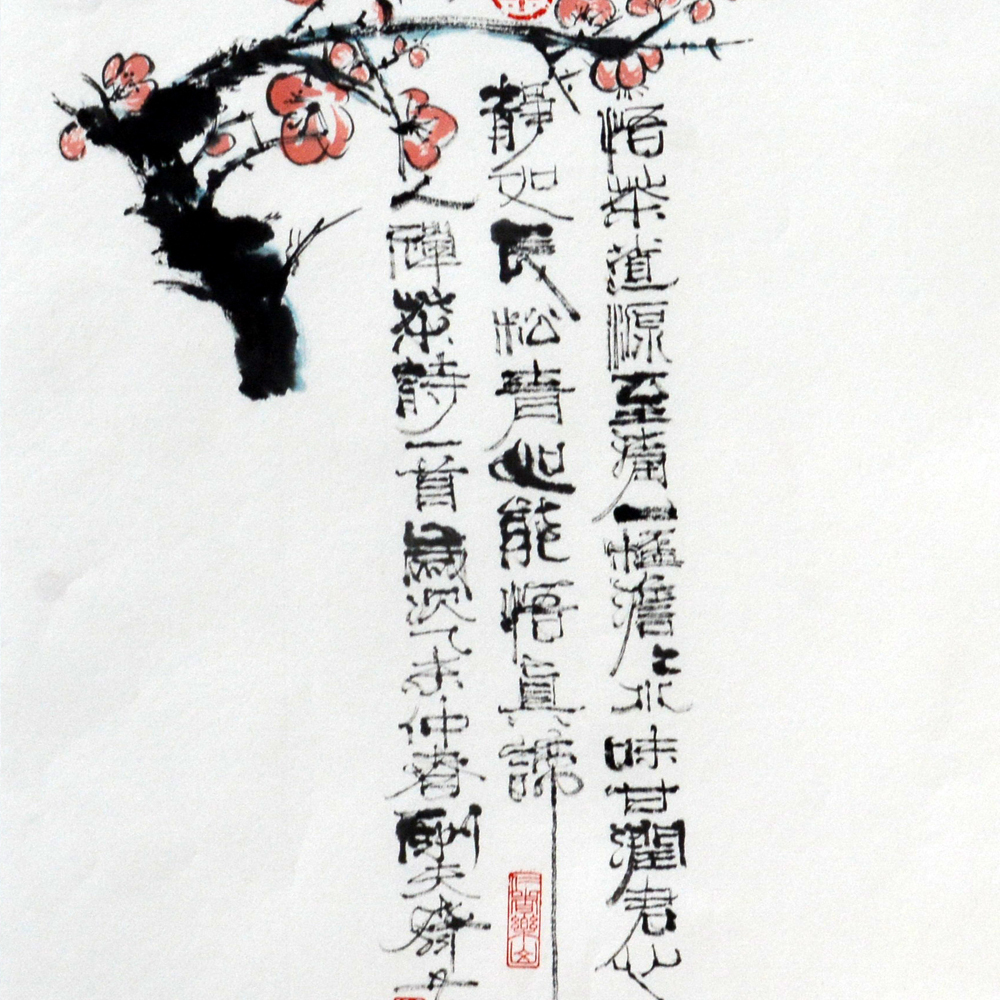 悟茶道源至清一澹水味甘潤君心
静如長松青能悟真諦
人禪茶詩一首歲次乙未仲春夫齋